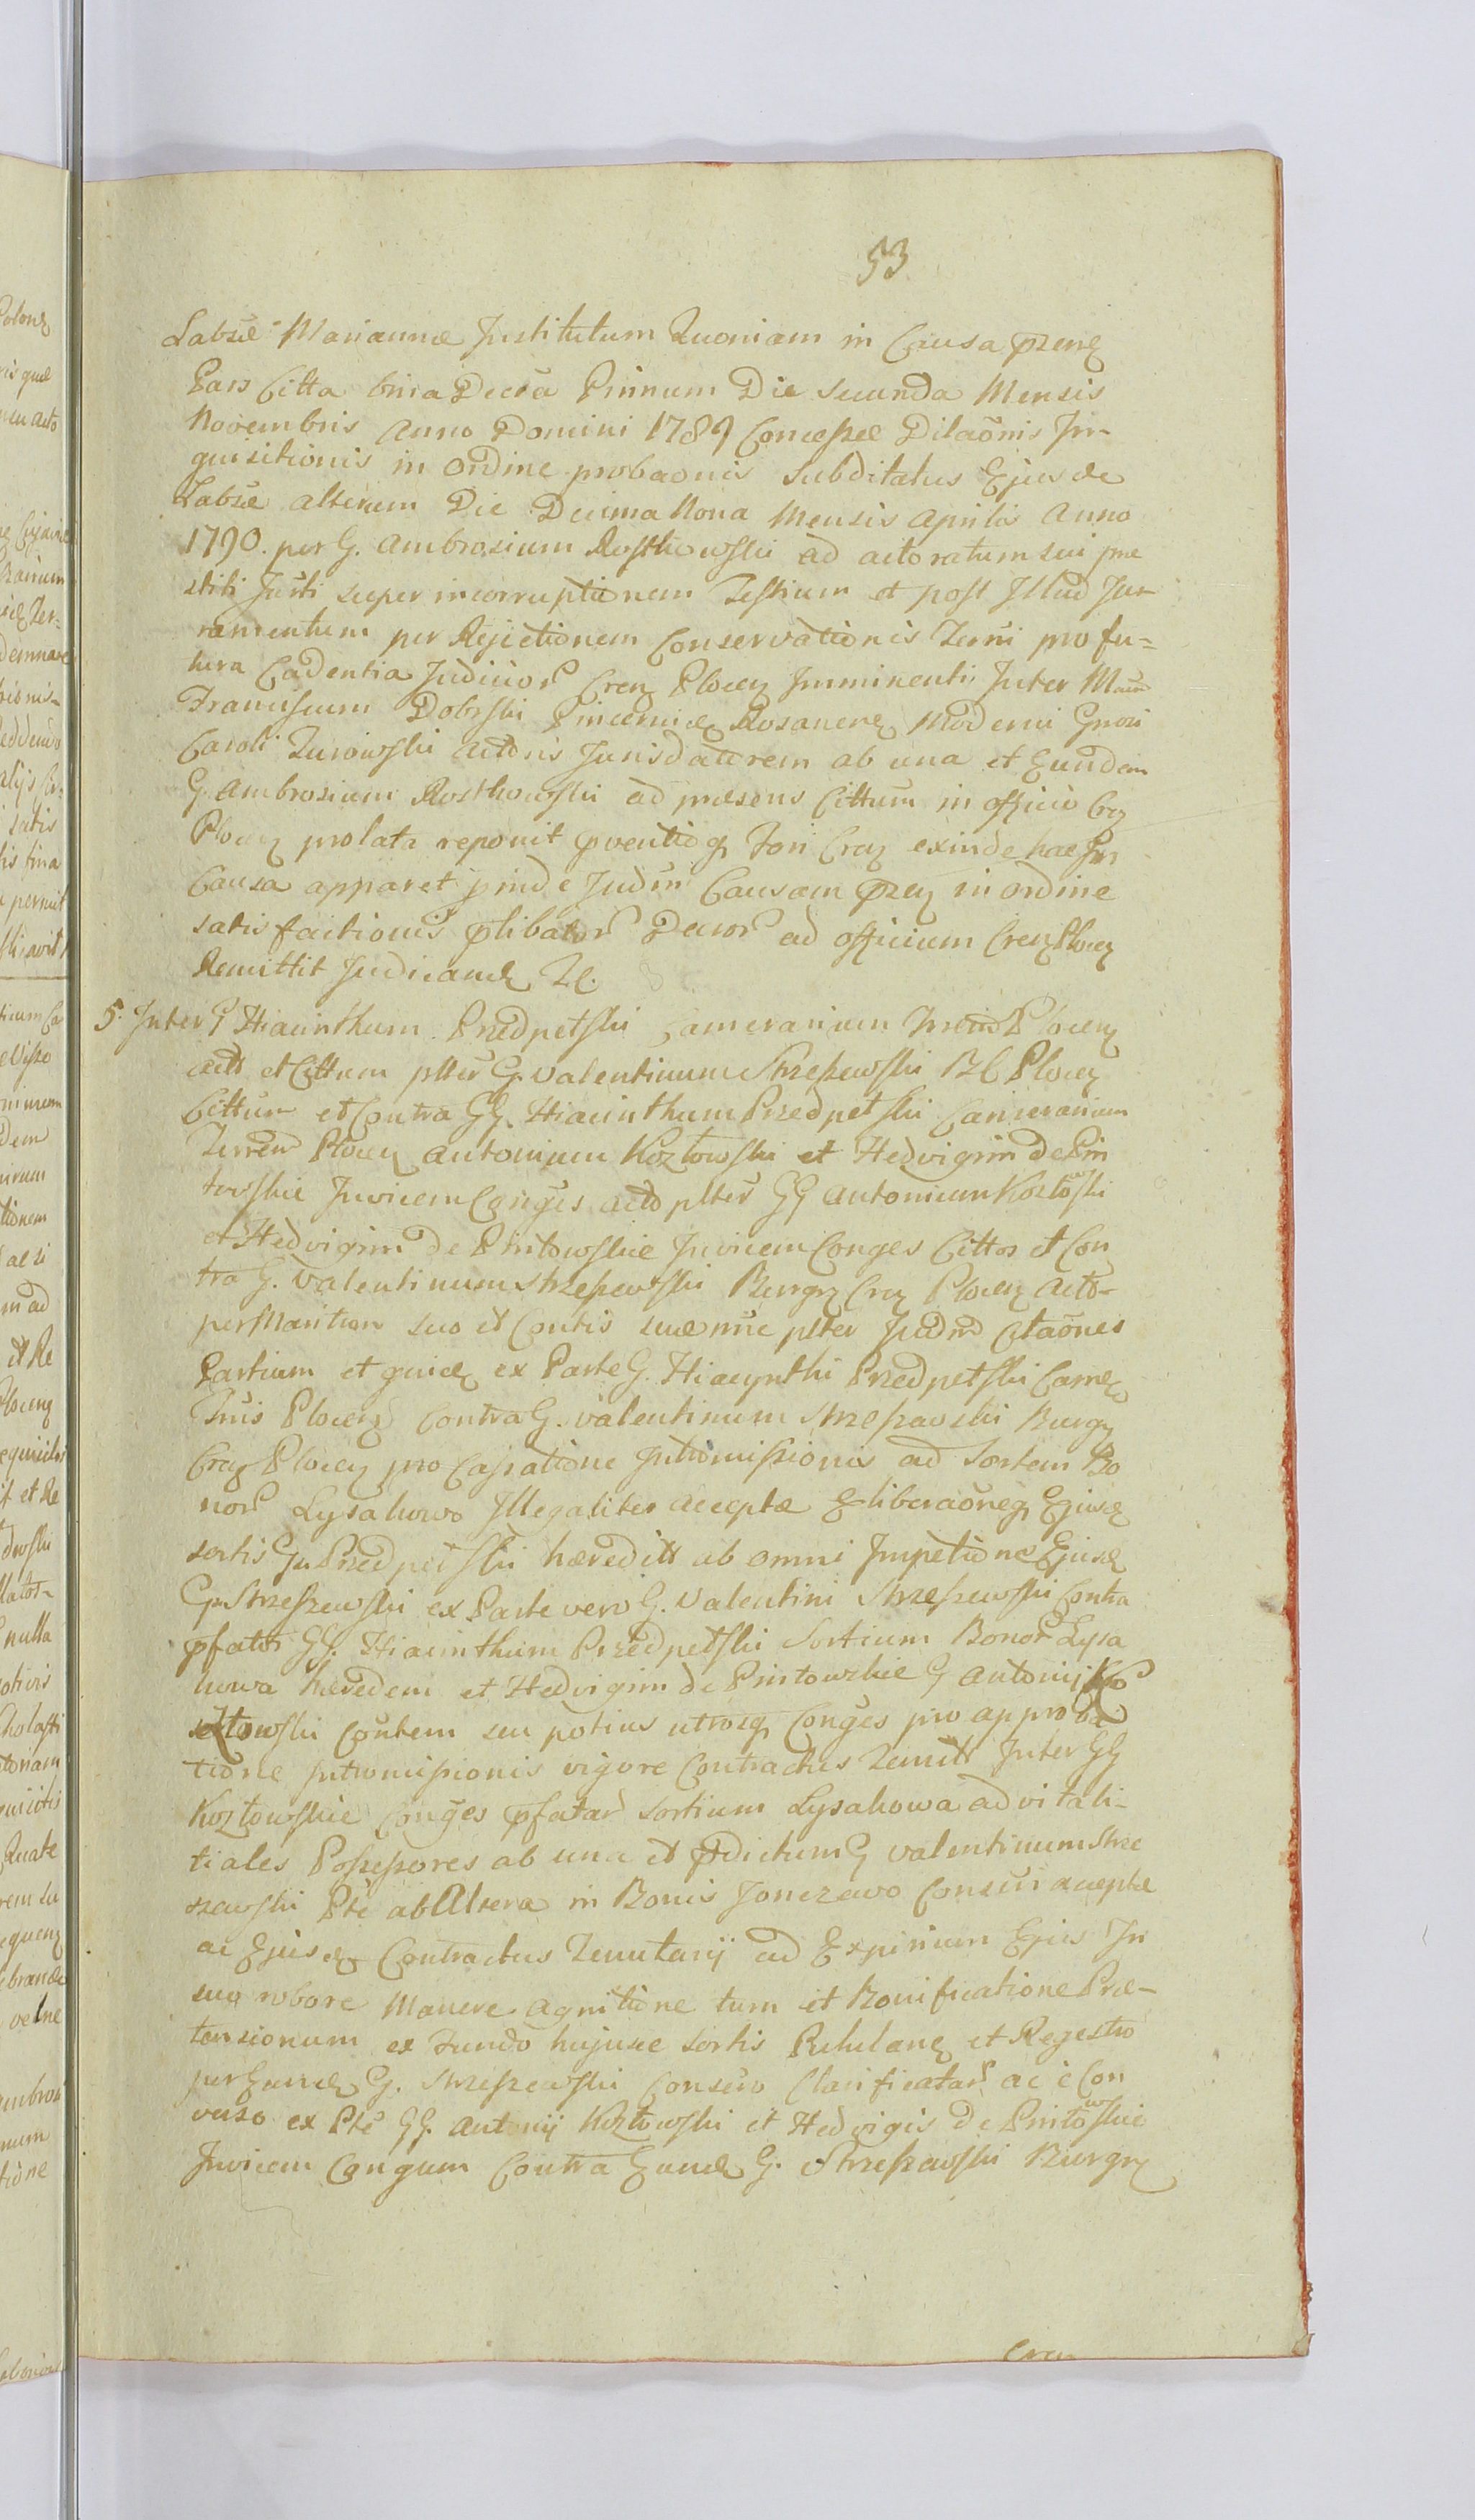 53
Labsæ Mariannæ Institutum Quoniam in Causa pzenq
Pars Citta bina Decra Primum Die Secunda Mensis
Novembris Anno Domini 1789 Concessæ Dilaonis In-
quisitionis in Ordine probaonis Subditatus Ejusde
Labsæ alterum Die Decima Nona Mensis Aprilis Anno
1790. per G. Ambrosium Rostkowski ad actoratum sui præ
stiti Jurti super incorruptionem Testium et post Illud Jur-
ramentum per Rejectionem Conservationis Terni pro fu-
tura Cadentia Judicior Cren Plocen Imminenti Inter M
Franciscum Dobrski Pincernidæ Rosanenq Moderni Gnosi
Caroli Zurowski Actoris Jurisdatorem ab una et Eundem
G. Ambrosium Rostkowski ad præsens Cittum in officio Crz
Plocen prolata reponit pventioq Fori Crez exinde hac In
Causa apparet pinde Judm Causam pzen in ordine
satisfactionis plibator Decror ad officium Cren Plocen
Remittit Judicand Zc.
5. Inter G Hiacinthum Przedpetski Camerarium Plocen
actt et Cittum plter G. Valentinum Strzeszewski BC Plocen
Cittum et Contra GG. Hiacinthum Przedpetski Camerarium
Terren Plocen Antonium Kozłowski et Hedvigim de Prin
towskie Invicem Conges acto plter GG Antonium Kozłowski
et Hedvigim de Printowskie Invicem Conges Cittos et Con
tra G. Valentinum Strzeszewski Burgz Crz Plocen acto-
per Maritum suo et Contis suæ nue plter Judm Citaones
Partium et quidæ ex Parte G. Hiacynthi Przedpetski Camer
Tris Plocen Contra G. Valentinum Strzeszewski Burgz
Crz Plocen pro Cassatione Intromissionis ad Sortem Bo
nor Lysakowo Illegaliter acceptæ & liberaoneq Ejusd
sortis Gn Przedpetski hæreditt ab omni Impetitione Ejusd
Gn Strzeszewski ex Parte vero G. Valentini Strzeszewski Contra
pfator GG. Hiacinthum Przedpetski Sortium Bonor Lysa
kowa hæredem et Hedvigim de Printowskie G Antonij Ko
złowski Contem seu potius utrosq Conges pro approba
tione Intromissionis vigore Contractus Zenutt Inter GG
Kozłowskie Conges pfatar Sortium Lysakowa advitali-
tiales Possessores ab una et pdictum G Valentinum Strze
szewski Pte ab Altera in Bonis Jonczewo Conseri acceptæ
ac Ejusd Contractus Tenutarij ad Expirium Ejus In
suo robore Manere agnitione tum et Bonificatione Præ-
tensionum ex Fundo hujusce Sortis Pululanq et Regestro
per Eund G. Strzeszewski Conscro Clarificatar ac è Con
verso ex Pte GG. Antonij Kozłowski et Hedvigis de Printowskie
Invicem Congum Contra Eund G. Strzeszewski Burgz
Cren